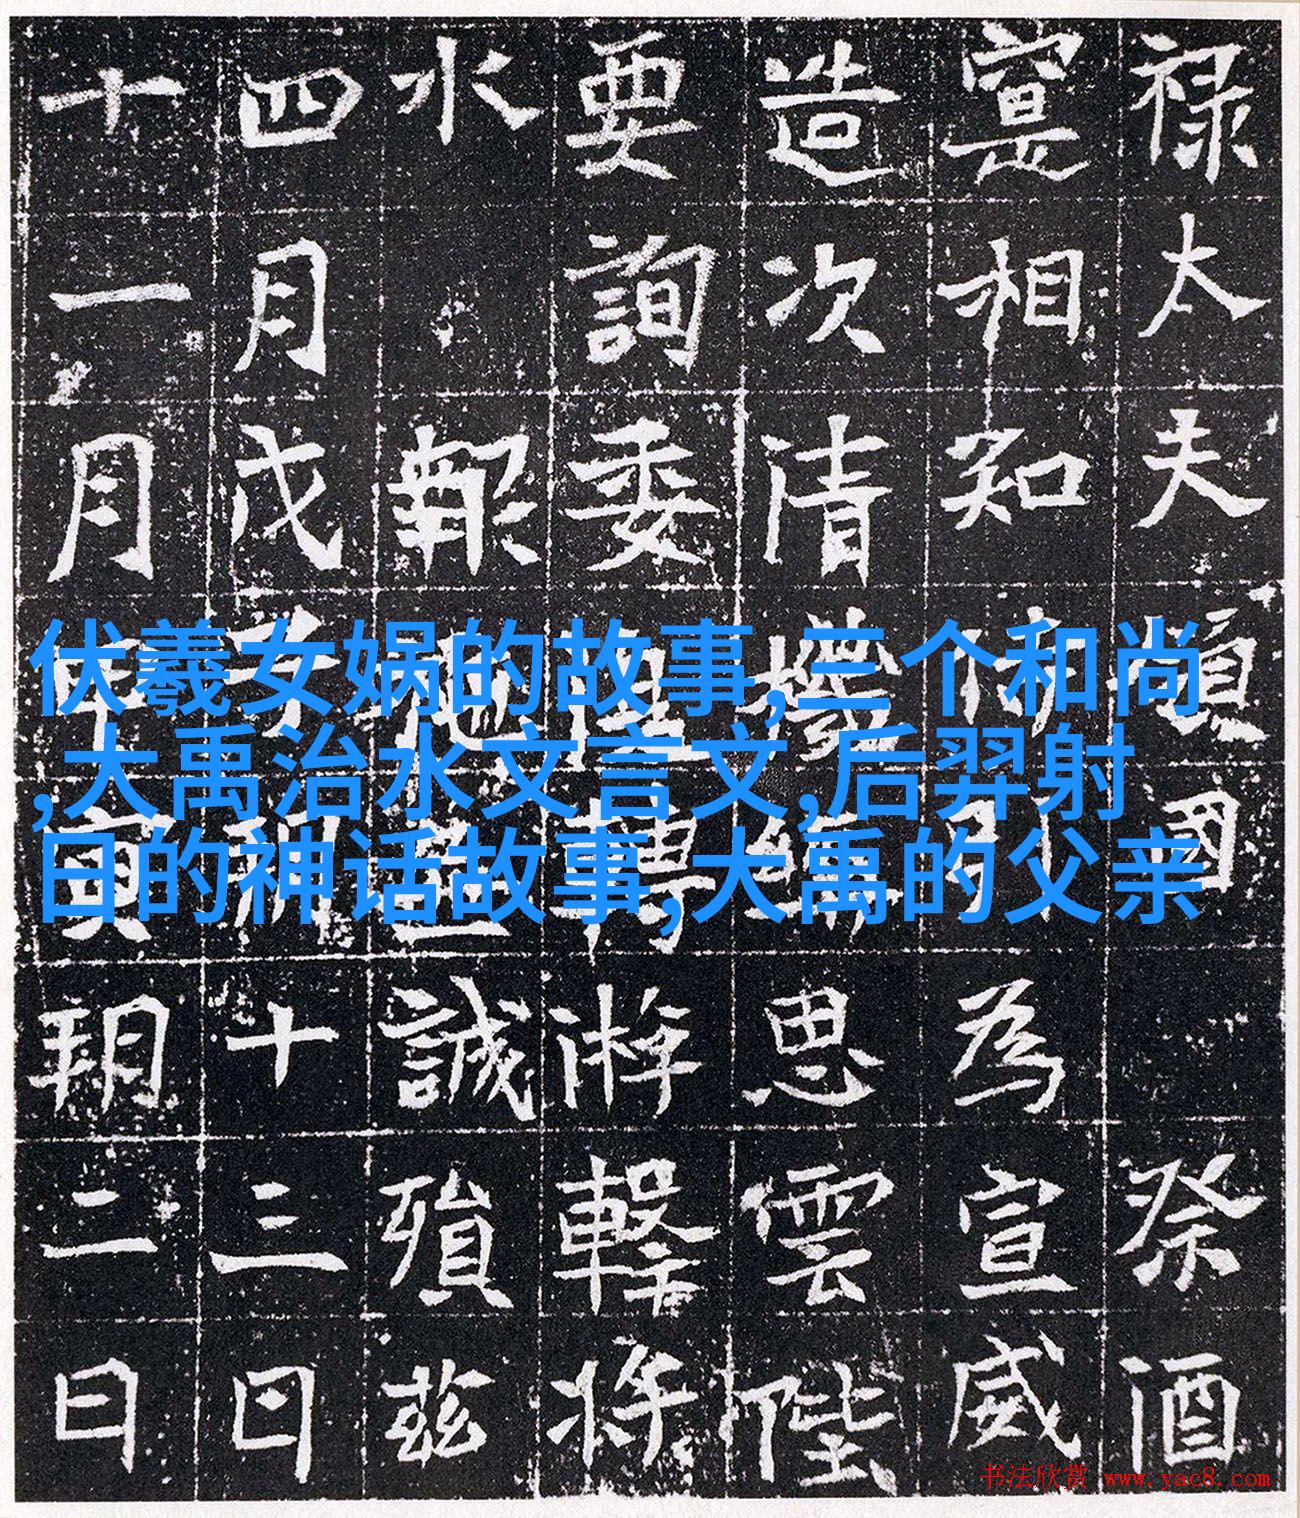 禄太夫國祭酒
寔相知為宣威
造次清機思雲陛
要詢委轉游擊將
水報誠殞茲
四月戊子朔十三日
十一月寅朔二日
伏羲女娲的故事,三个和尚
,大禹治水文言文,后羿射
日的神话故事,大禹的父亲
书法欣赏 www.yac8.com